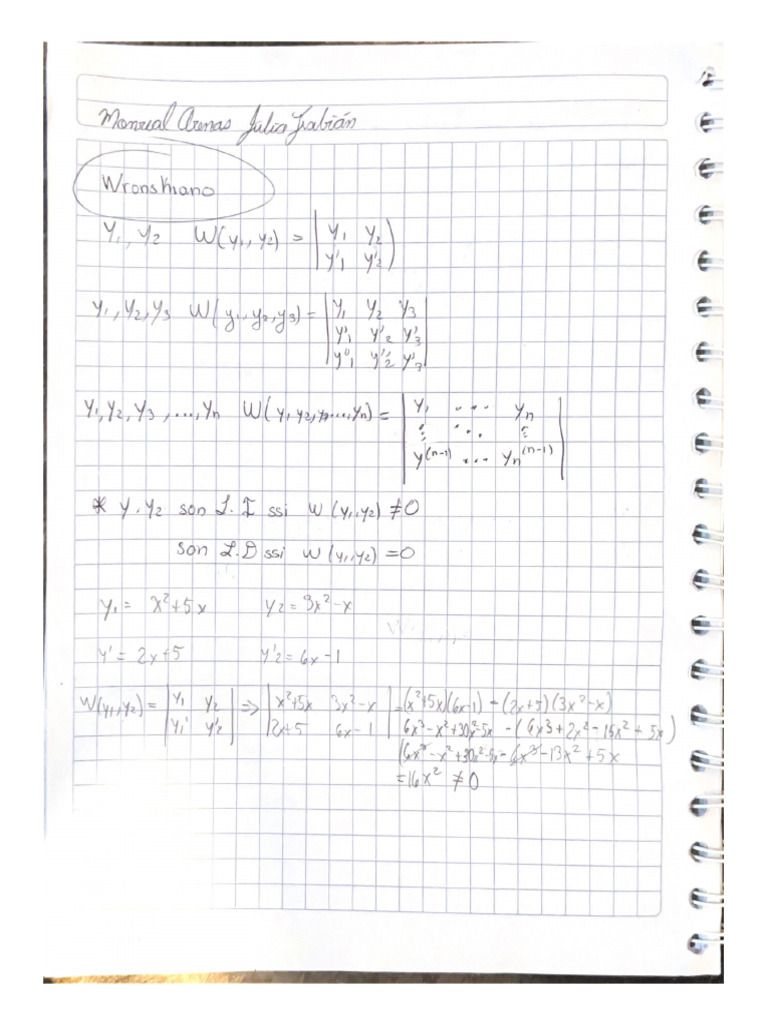 Monreal Arenas Julio Fabián
Wronskiano
y₁, y₂ W(y₁, y₂) = | y₁ y₂ |
| y'₁ y'₂ |
y₁, y₂, y₃ W(y₁, y₂, y₃) = | y₁ y₂ y₃ |
| y'₁ y'₂ y'₃ |
| y''₁ y''₂ y''₃ |
y₁, y₂, y₃, ..., yn W(y₁, y₂, y₃, ..., yn) = | y₁ ... yn |
| ⋮ ⋱ ⋮ |
| y⁽ⁿ⁻¹⁾ ... yn⁽ⁿ⁻¹⁾ |
* y₁ y₂ son L.I ssi W(y₁, y₂) ≠ 0
son L.D ssi W(y₁, y₂) = 0
y₁ = x² + 5x y₂ = 3x² - x
y' = 2x + 5 y'₂ = 6x - 1
W(y₁, y₂) = | y₁ y₂ | ⇒ | x²+5x 3x²-x | = (x²+5x)(6x-1) - (2x+5)(3x²-x)
| y₁' y'₂ | | 2x+5 6x-1 | 6x³ - x² + 30x² - 5x - (6x³ + 2x² - 15x² + 5x)
6x³ - x² + 30x² - 5x - 6x³ - 13x² + 5x
= 16x² ≠ 0